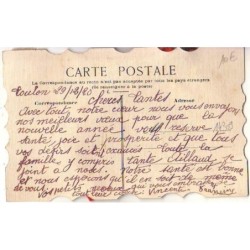 CARTE POSTALE
La Correspondance au recto n'est pas acceptée par tous les pays étrangers
(Se renseigner à la poste)
Toulon 29/12/20
Correspondance Adresse
Chères tantes
Avec tout notre cœur nous vous envoyons
nos meilleurs vœux pour que la
nouvelle année vous réserve
santé joie et prospérité et que tous
vos désirs soient exaucés toute la
famille y compris tante
joint à nous. notre santé est bonne
et nous espérons qu'il en est de même
de vous. Vos petits neveux qui vous embrassent
Vincent François